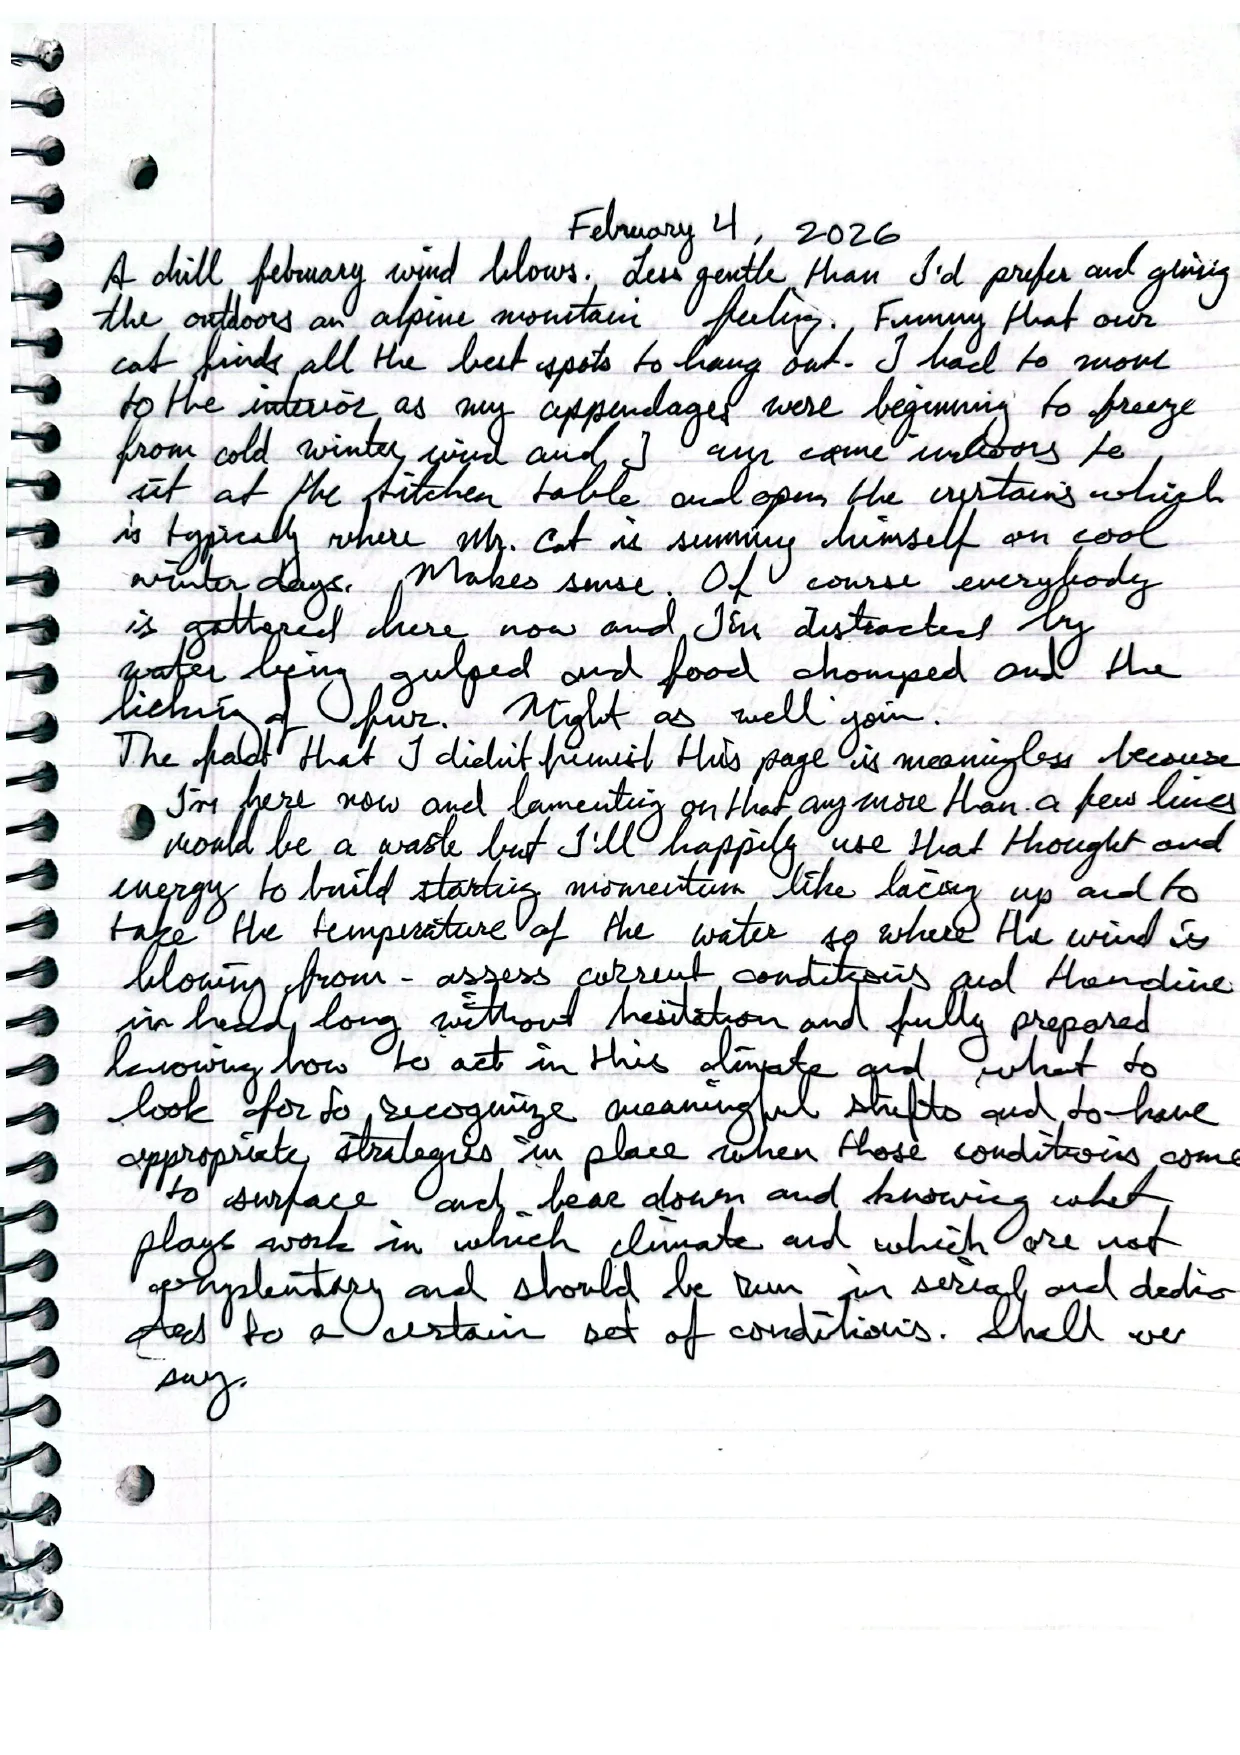 February 4, 2026
A chill february wind blows. Less gentle than I'd prefer and giving
the outdoors an alpine mountain feeling. Funny that our
cat finds all the best spots to hang out. I had to move
to the interior as my appendages were beginning to freeze
from cold winter wind and I am come indoors to
sit at the kitchen table and open the curtains which
is typically where Mr. Cat is sunning himself on cool
winter days. Makes sense. Of course everybody
is gathered here now and I'm distracted by
water being gulped and food chomped and the
licking of fur. Might as well join.
The fact that I didn't finish this page is meaningless because
I'm here now and lamenting on that any more than a few lines
would be a waste but I'll happily use that thought and
energy to build starting momentum like lacing up and to
take the temperature of the water so where the wind is
blowing from - assess current conditions and then dive
in head long without hesitation and fully prepared
knowing how to act in this climate and what to
look for to recognize meaningful shifts and to have
appropriate strategies in place when those conditions come
to surface and bear down and knowing what
plays work in which climate and which are not
and should be run in serial and dedic-
ated to a certain set of conditions. Shall we
say.